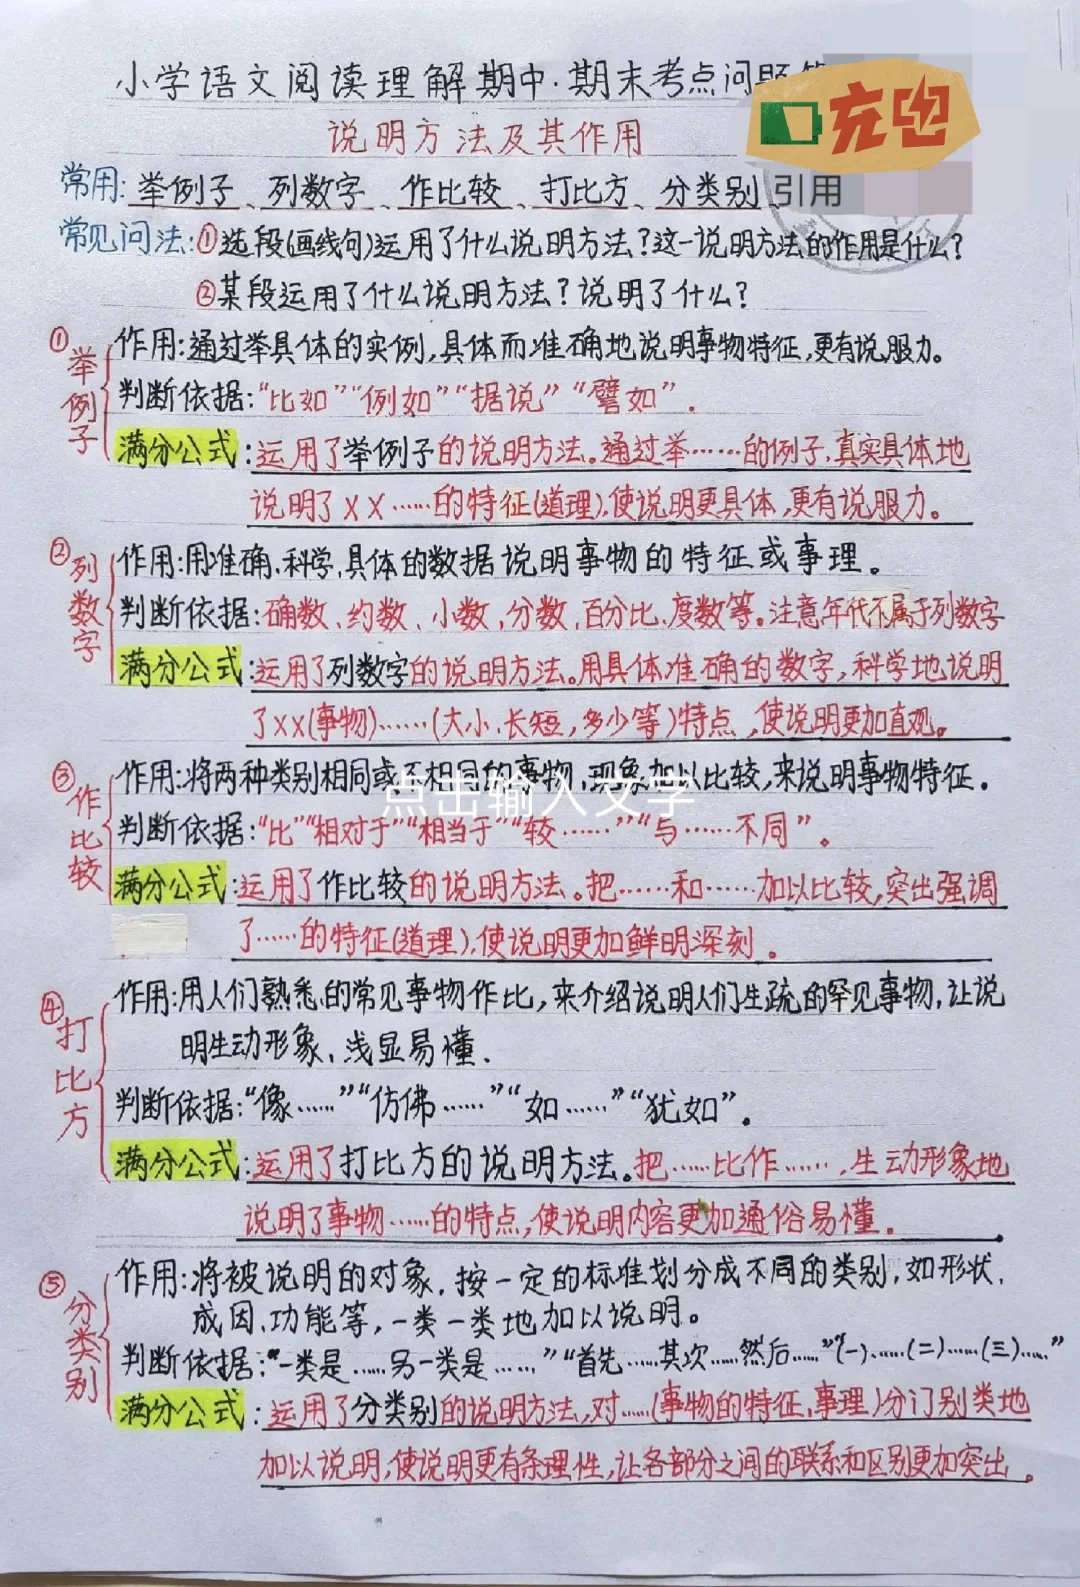 小学语文阅读理解期中·期末考点问题
充电
说明方法及其作用
常用:举例子、列数字、作比较、打比方、分类别、引用
常见问法:①选段(画线句)运用了什么说明方法?这一说明方法的作用是什么?
②某段运用了什么说明方法?说明了什么?
①举例子
作用:通过举具体的实例,具体而准确地说明事物特征,更有说服力。
判断依据:“比如”“例如”“据说”“譬如”.
满分公式:运用了举例子的说明方法。通过举……的例子,真实具体地
说明了××……的特征(道理),使说明更具体,更有说服力。
②列数字
作用:用准确、科学、具体的数据说明事物的特征或事理。
判断依据:确数、约数、小数、分数、百分比、度数等。注意年代不属于列数字
满分公式:运用了列数字的说明方法。用具体准确的数字,科学地说明
了××(事物)……(大小、长短,多少等)特点,使说明更加直观。
③作比较
作用:将两种类别相同或不相同的事物,现象加以比较,来说明事物特征。
点击输入文字
判断依据:“比”“相对于”“相当于”“较……”“与……不同”。
满分公式:运用了作比较的说明方法。把……和……加以比较,突出强调
了……的特征(道理),使说明更加鲜明深刻。
④打比方
作用:用人们熟悉的常见事物作比,来介绍说明人们生疏的罕见事物,让说
明生动形象、浅显易懂.
判断依据:“像……”“仿佛……”“如……”“犹如”。
满分公式:运用了打比方的说明方法。把……比作……,生动形象地
说明了事物……的特点,使说明内容更加通俗易懂。
⑤分类别
作用:将被说明的对象,按一定的标准划分成不同的类别,如形状、
成因、功能等,一类一类地加以说明。
判断依据:“一类是……另一类是……”“首先……其次……然后……”“(一)……(二)……(三)……”
满分公式:运用了分类别的说明方法,对……(事物的特征、事理)分门别类地
加以说明,使说明更有条理性,让各部分之间的联系和区别更加突出。